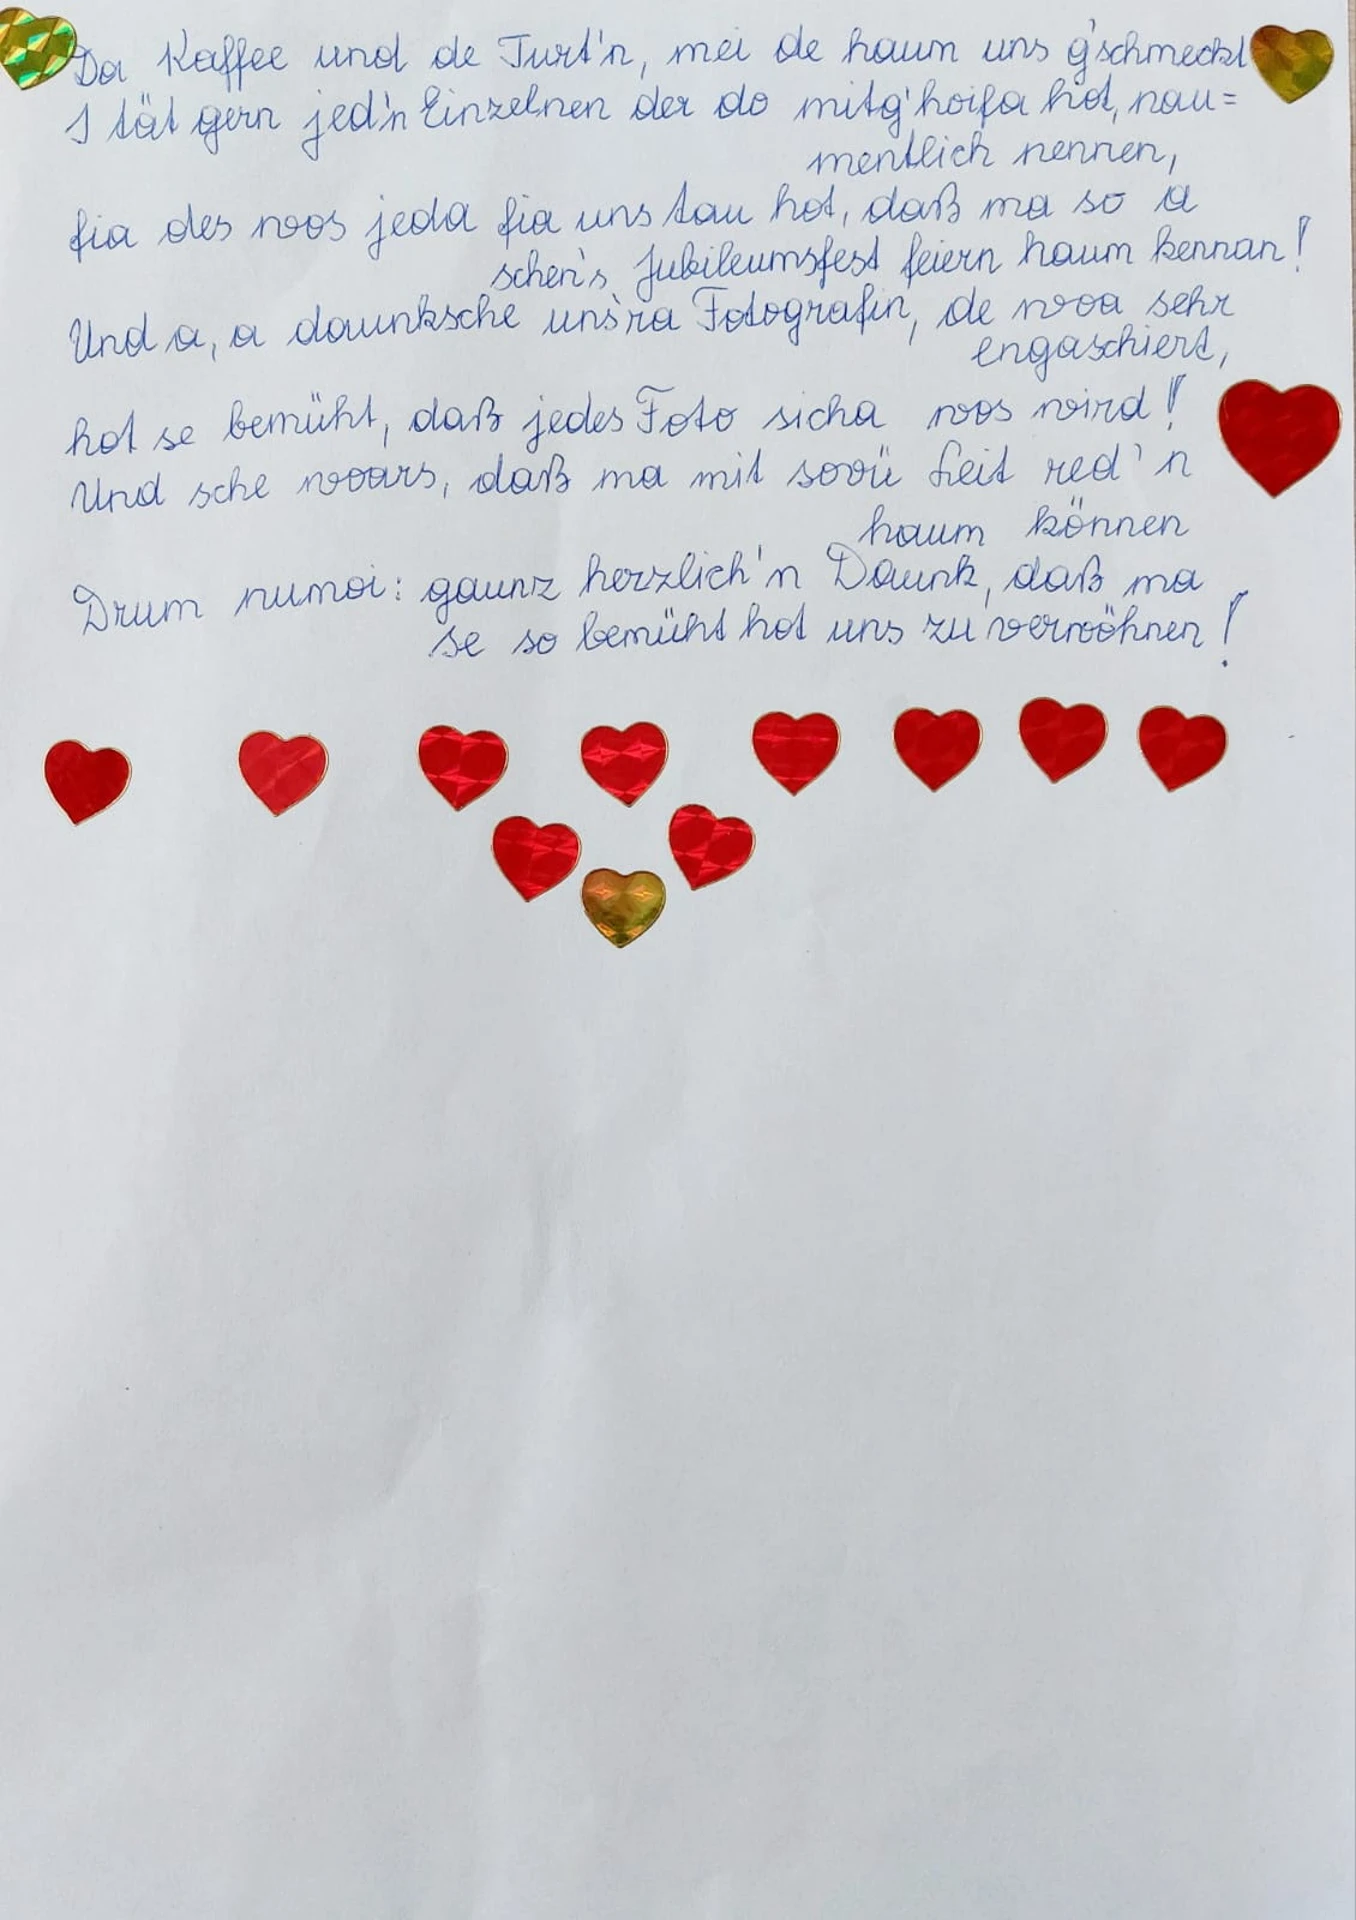 Da Kaffee und de Turt'n, mei de haum uns g'schmeckt
I tät gern jed'n Einzelnen der do mitg'hoifa hot, nau=
mentlich nennen,
fia des wos jeda fia uns tau hot, daß ma so a
schen's Jubileumsfest feiern haum kennan!
Und a, a daunksche uns'ra Fotografin, de woa sehr
engaschiert,
hot se bemüht, daß jedes Foto sicha wos wird!
Und sche woars, daß ma mit sovü Leit red'n
haum können
Drum numoi: gaunz herzlich'n Daunk, daß ma
se so bemüht hot uns zu verwöhnen!